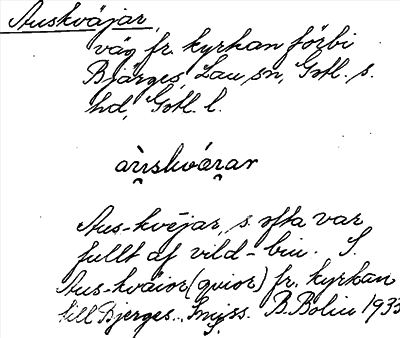 Auskväjar,
väg fr. kyrkan förbi
Bjärges, Lau sn, Gotl. s.
hd, Gotl. l.
Aus-kvéjar, s. ofta var
fullt af vild-bin. S.
Aus-kväior (qvior) fr. kyrkan
till Bjerges. B. Bolin 1933
S.